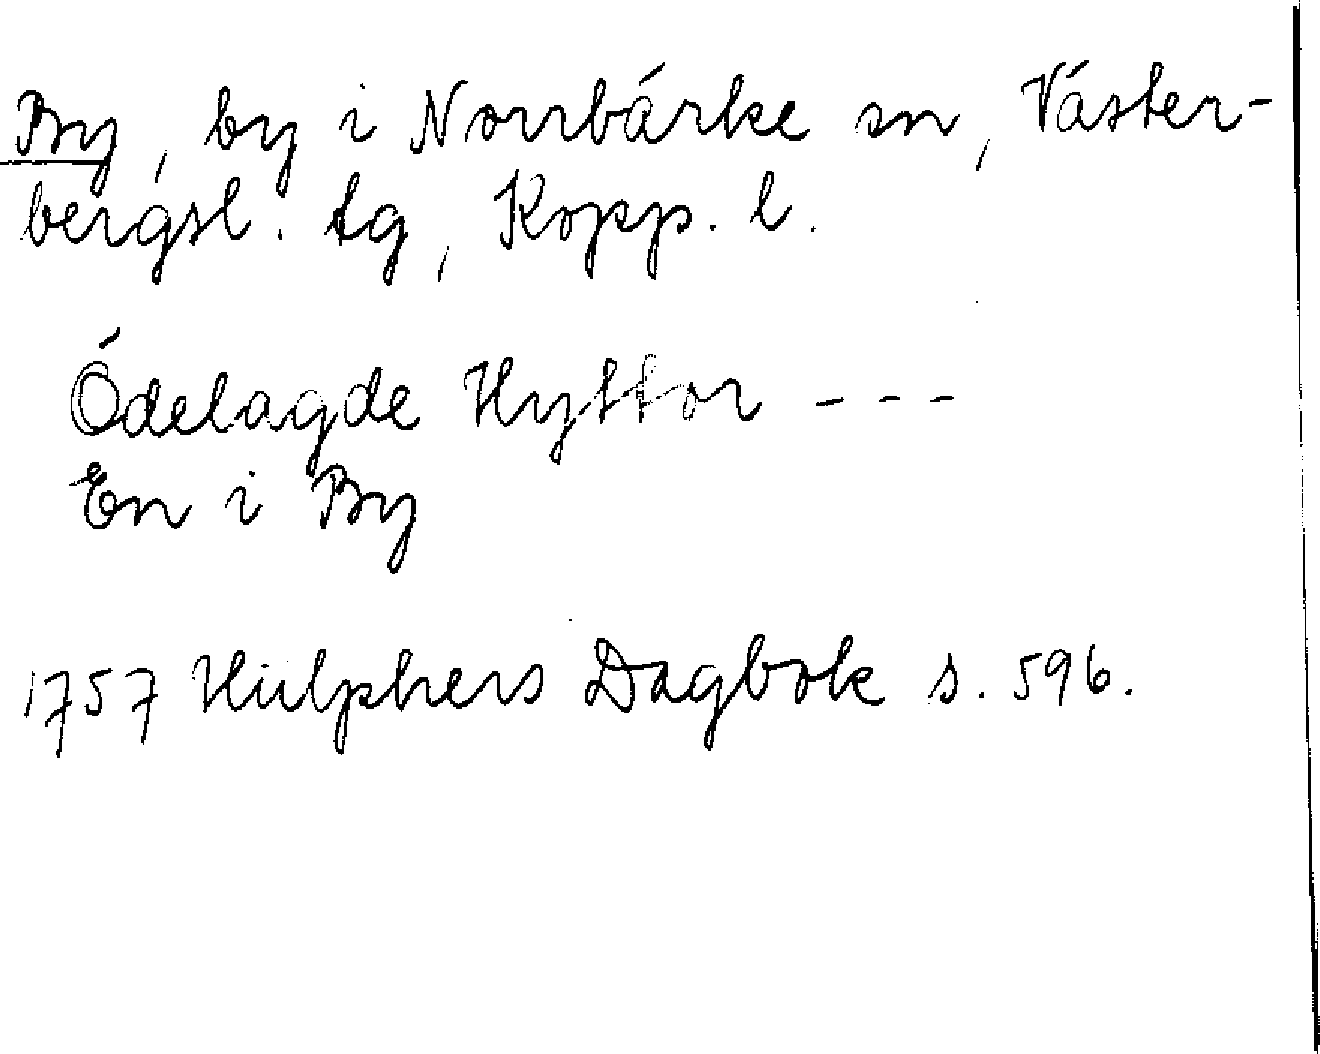 By, by i Norrbärke sn, Väster-
bergsl. tg, Kopp. l.
Ödelagde Hyttor ---
En i By
1757 Hülphers Dagbok s. 596.